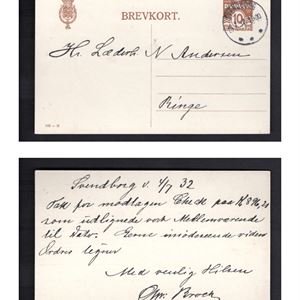 BREVKORT.
DANMARK
10
Hr. Læderh. N Andersen
Ringe
Svendborg d. 4/7 32
Tak for modtagen Check paa Kr 896,20
som udlignede vort Mellemværende
til Dato. Gerne imødeseende videre
Ordre tegner
Med venlig Hilsen
Chr. Broch